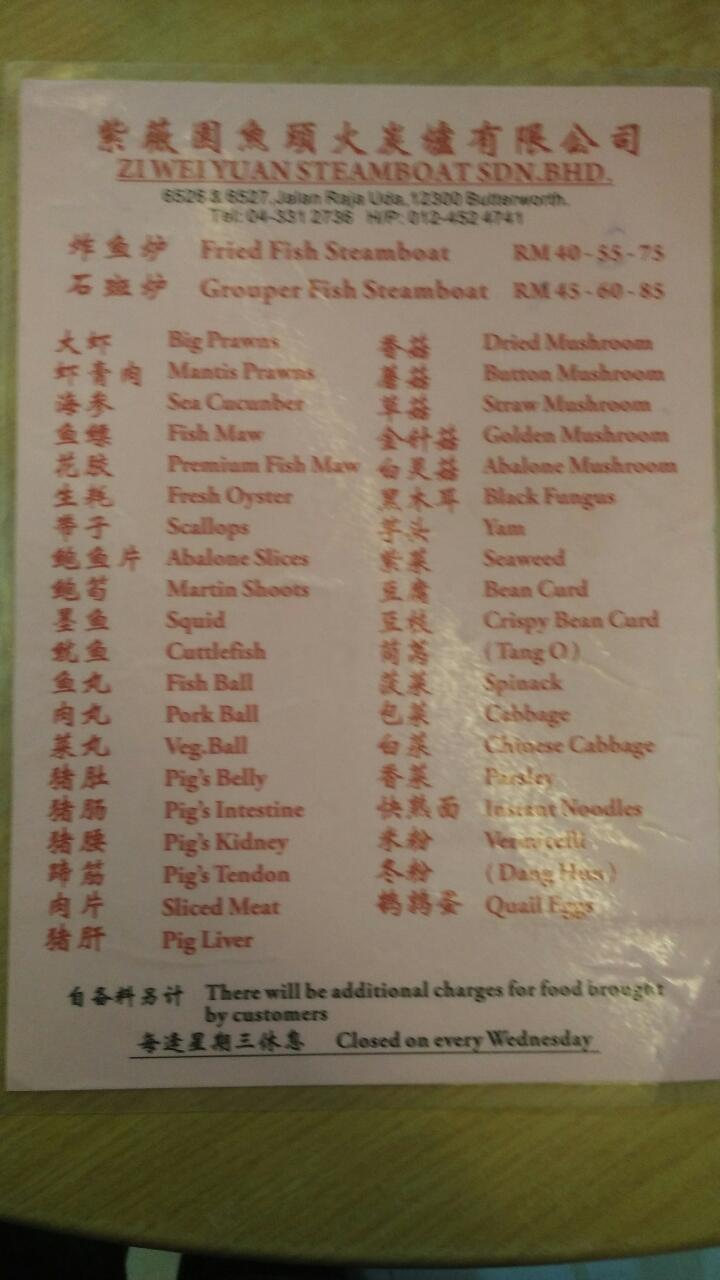 紫薇園魚頭火炭爐有限公司
ZI WEI YUAN STEAMBOAT SDN.BHD.
6526 & 6527,Jalan Raja Uda,12300 Butterworth.
Tel: 04-331 2736 H/P: 012-452 4741
炸鱼炉 Fried Fish Steamboat RM 40 - 55 - 75
石斑炉 Grouper Fish Steamboat RM 45 - 60 - 85
大虾 Big Prawns
虾膏肉 Mantis Prawns
海参 Sea Cucunber
鱼鳔 Fish Maw
花胶 Premium Fish Maw
生蚝 Fresh Oyster
带子 Scallops
鲍鱼片 Abalone Slices
鲍笋 Martin Shoots
墨鱼 Squid
鱿鱼 Cuttlefish
鱼丸 Fish Ball
肉丸 Pork Ball
菜丸 Veg.Ball
猪肚 Pig's Belly
猪肠 Pig's Intestine
猪腰 Pig's Kidney
蹄筋 Pig's Tendon
肉片 Sliced Meat
猪肝 Pig Liver
香菇 Dried Mushroom
蘑菇 Button Mushroom
草菇 Straw Mushroom
金针菇 Golden Mushroom
白灵菇 Abalone Mushroom
黑木耳 Black Fungus
芋头 Yam
紫菜 Seaweed
豆腐 Bean Curd
豆枝 Crispy Bean Curd
茼蒿 ( Tang O )
菠菜 Spinack
包菜 Cabbage
白菜 Chinese Cabbage
香菜 Parsley
快熟面 Instant Noodles
米粉 Vermicelli
冬粉 ( Dang Hun )
鹌鹑蛋 Quail Eggs
自备料另计 There will be additional charges for food brought
by customers
每逢星期三休息 Closed on every Wednesday